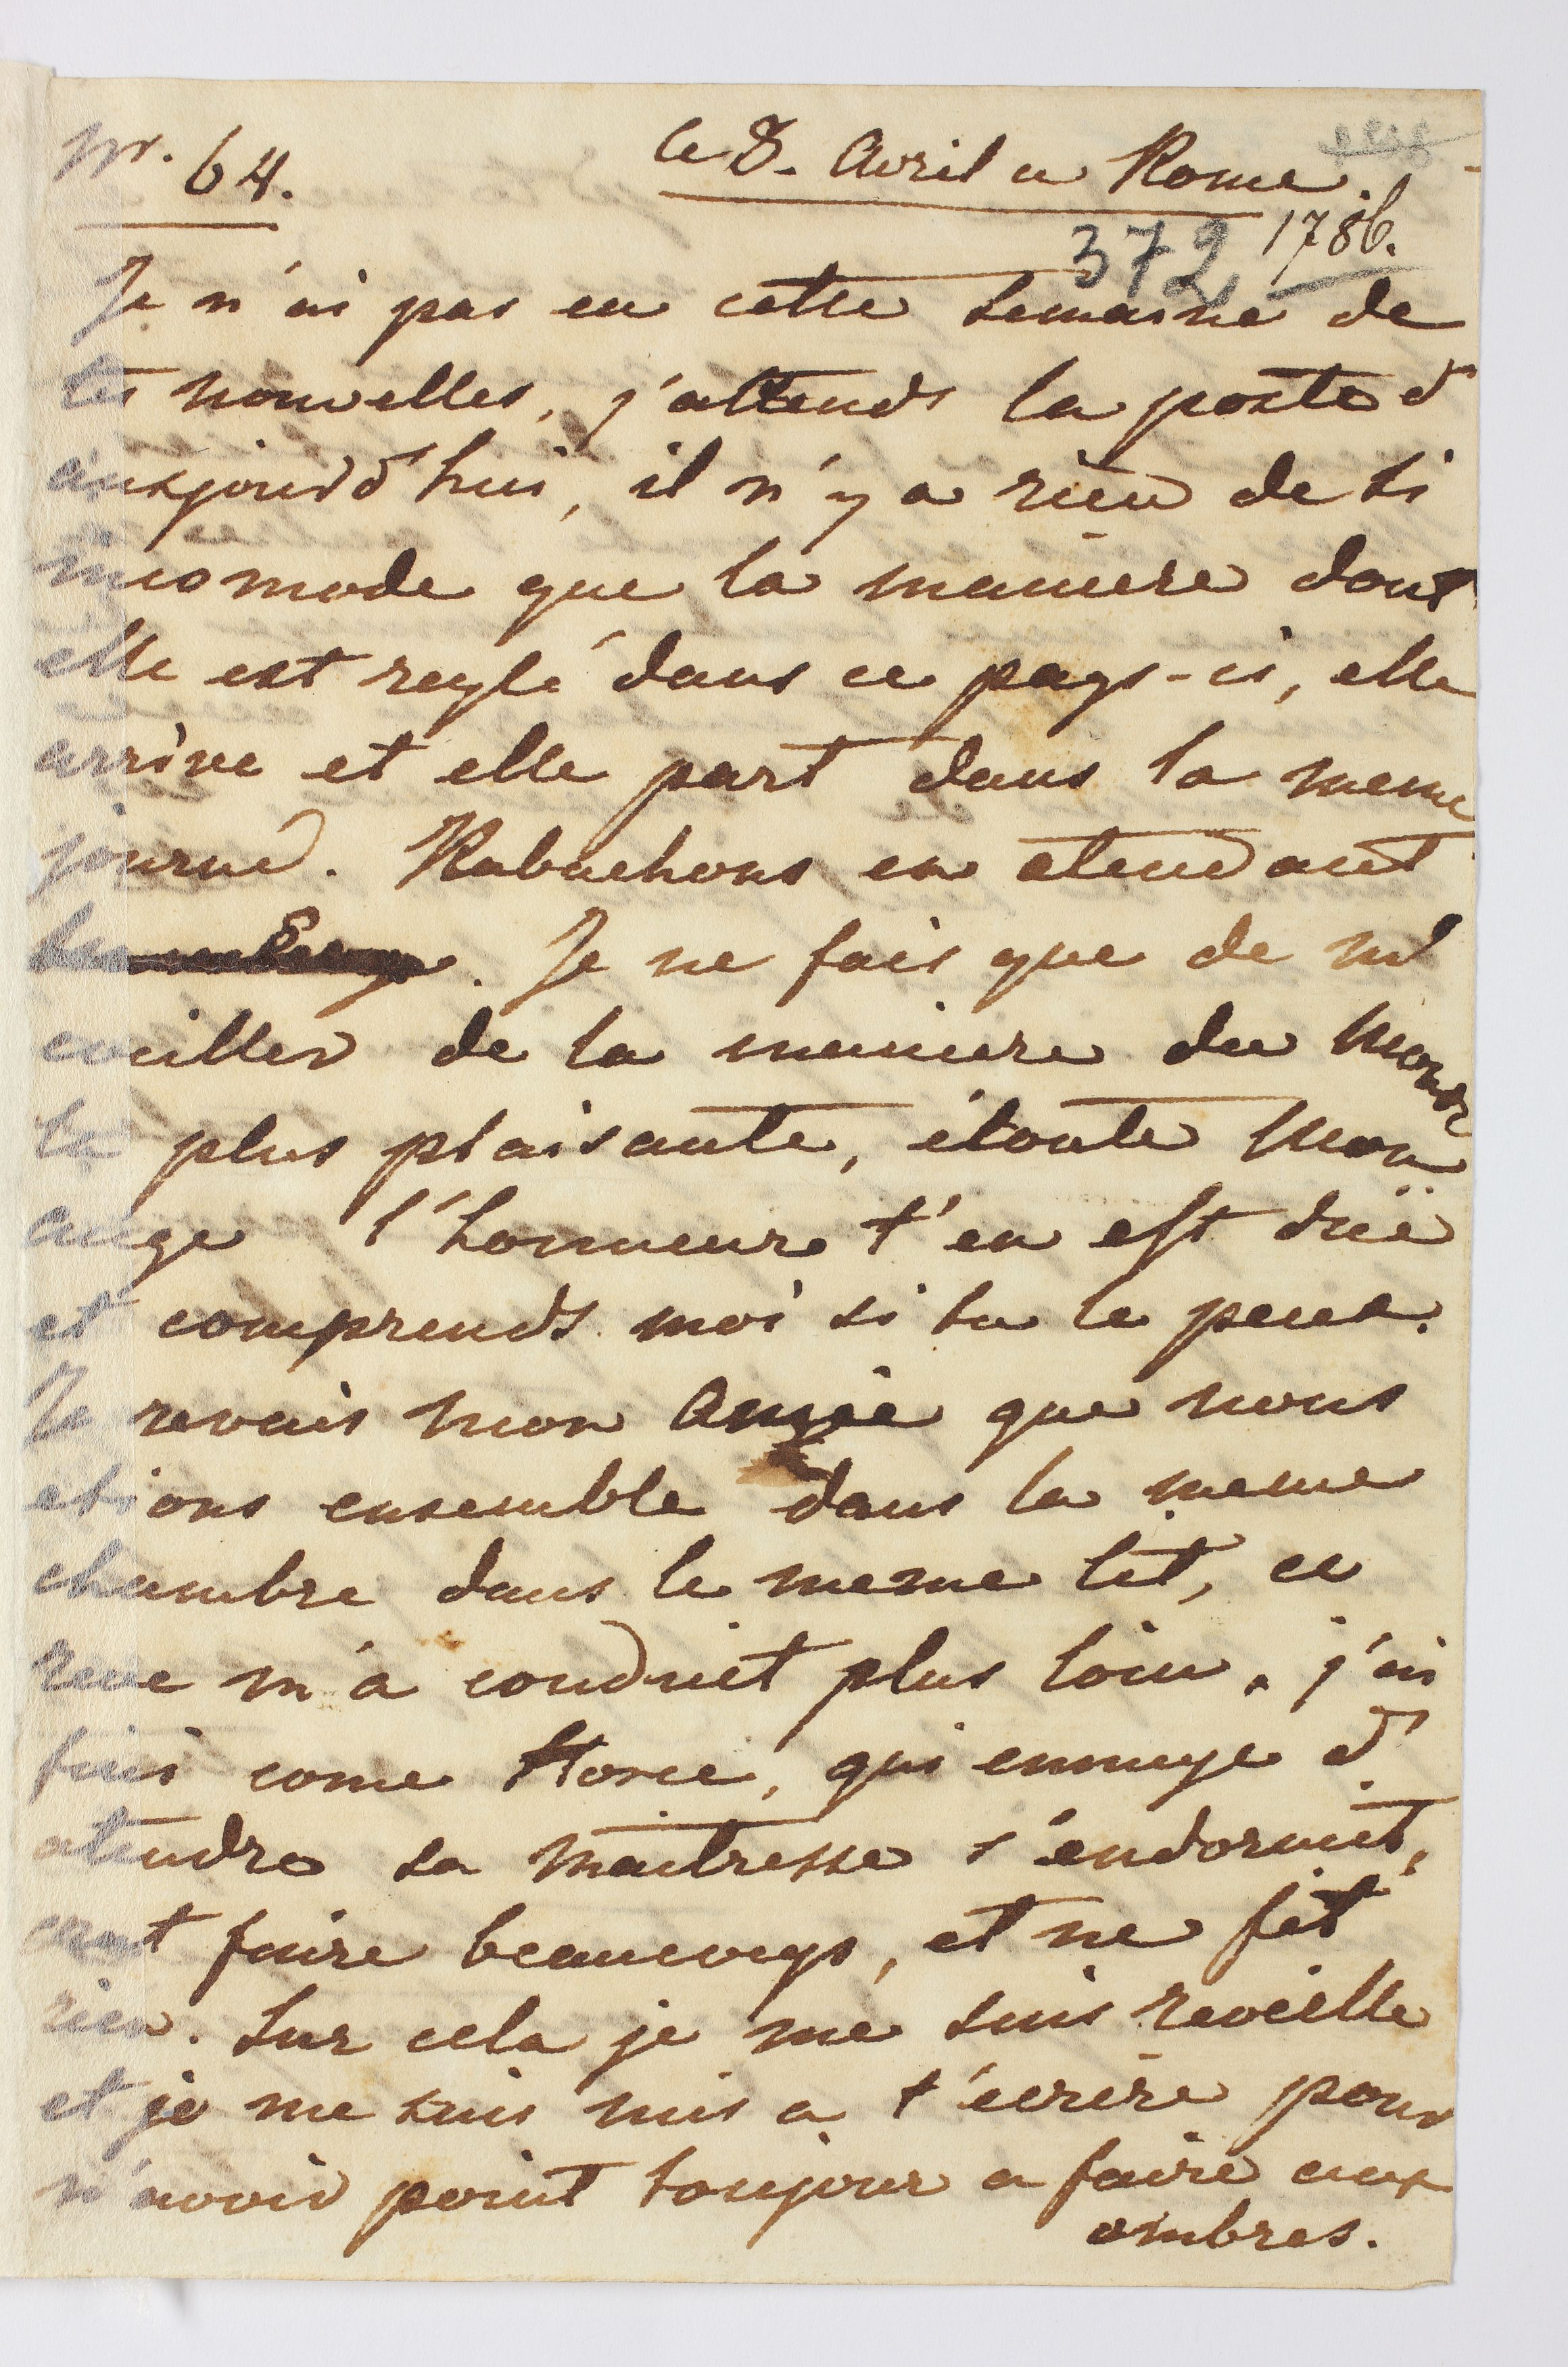 Nr. 64.
le 8. Avril a Rome.
1786.
372
Je n'ai pas eu cette semaine de
tes nouvelles, j'attends la poste d'
aujourd'hui, il n'y a rien de si
incomode que la maniere dont
elle est reglé dans ce pays-ci, elle
arrive et elle part dans la meme
journé. Rabachons en atendant
Je ne fais que de m'e
veiller de la maniere du Monde
la plus plaisante, écoute Mon
ange l'honneure t'en est düe
et comprends moi si tu le peux.
Je revais mon Amie que nous
etions ensemble dans la meme
chambre dans le meme lit, ce
reve m'a conduit plus loin, j'ai
fini come Horce, qui ennuye d'
atendre sa maitresse s'endormit,
crut faire beaucoup, et ne fit
rien. Sur cela je me suis reveille
et je me suis mis a t'ecrire pour
n'avoir point toujour a faire aux
ombres.